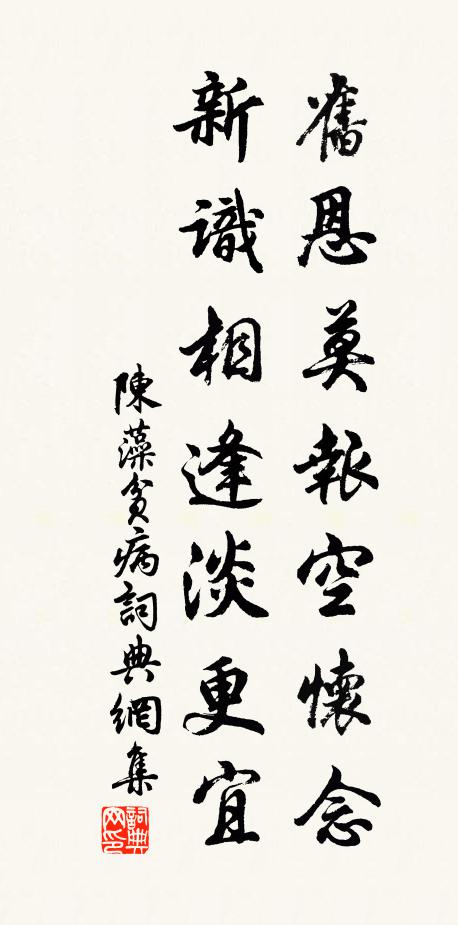 舊恩莫報空懷念
新識相逢淡更宜
陳藻貧病詞典網集
詞典網印